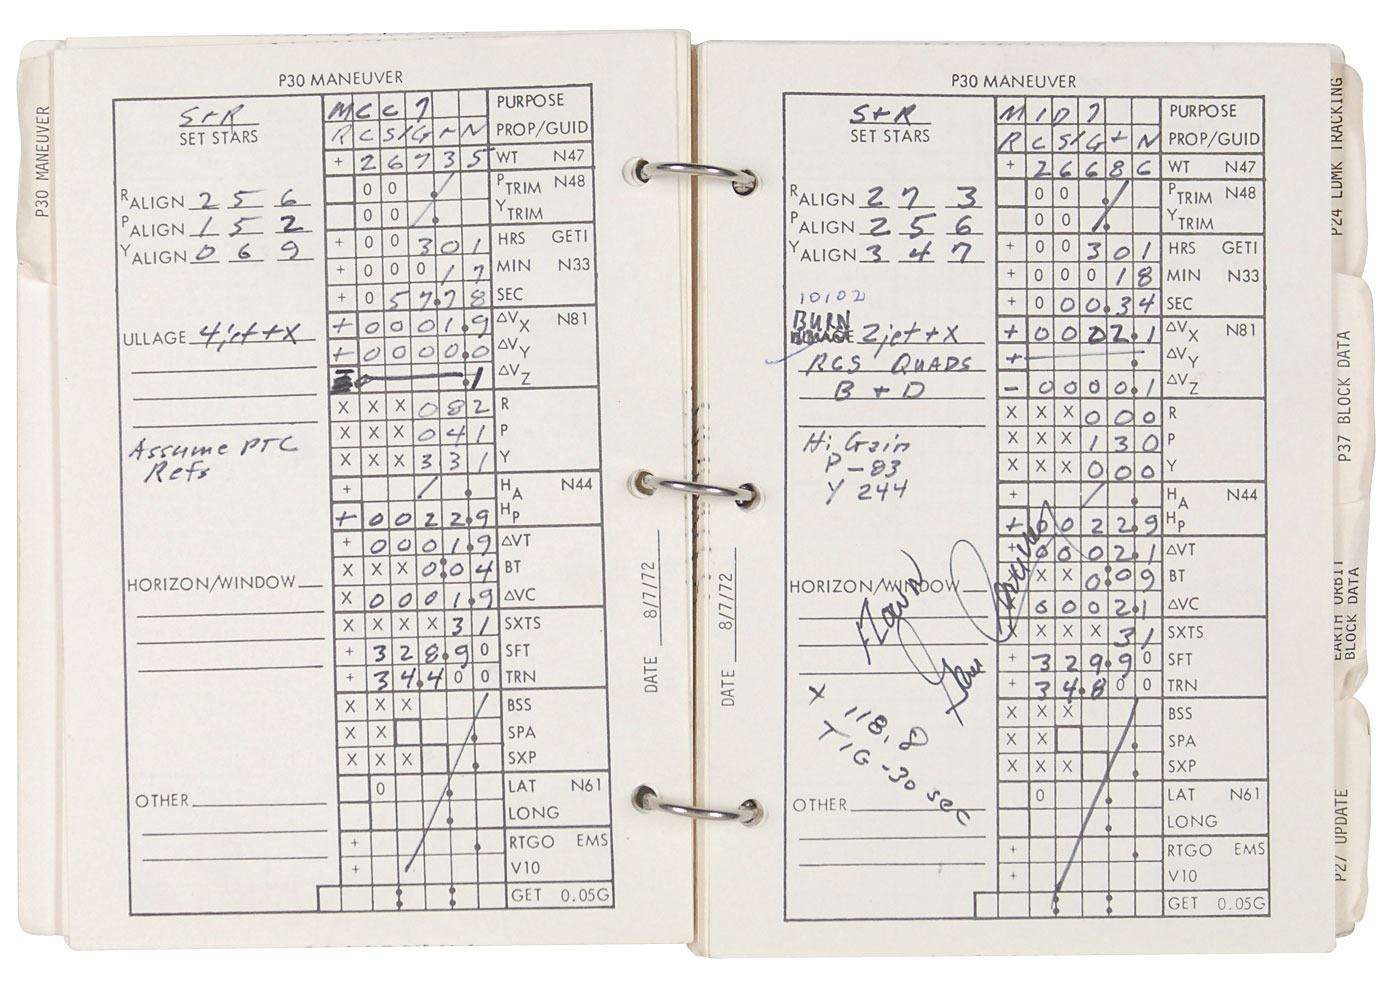 P30 MANEUVER
P30 MANEUVER
S+R
SET STARS
M C C 7 PURPOSE
R C S/G+N PROP/GUID
+ 2 6 7 3 5 WT N47
0 0 PTRIM N48
0 0 YTRIM
RALIGN 2 5 6
PALIGN 1 5 2
YALIGN 0 6 9
+ 0 0 3 0 1 HRS GETI
+ 0 0 0 1 7 MIN N33
+ 0 5 7.7 8 SEC
ULLAGE 4jet+X
+ 0 0 0 1.9 ΔVX N81
+ 0 0 0 0.0 ΔVY
.1 ΔVZ
X X X 0 8 2 R
X X X 0 4 1 P
X X X 3 3 1 Y
Assume PTC
Refs
+ HA N44
+ 0 0 2 2.9 HP
+ 0 0 0 1.9 ΔVT
X X X 0:0 4 BT
X 0 0 0 1.9 ΔVC
HORIZON/WINDOW
X X X X 3 1 SXTS
+ 3 2 8.9 0 SFT
+ 3 4.4 0 0 TRN
X X X BSS
X X SPA
X X X SXP
OTHER
0 LAT N61
LONG
+ RTGO EMS
+ V10
GET 0.05G
DATE 8/7/72
P30 MANEUVER
S+R
SET STARS
M I D 7 PURPOSE
R C S/G+N PROP/GUID
+ 2 6 6 8 6 WT N47
0 0 PTRIM N48
0 0 YTRIM
RALIGN 2 7 3
PALIGN 2 5 6
YALIGN 3 4 7
+ 0 0 3 0 1 HRS GETI
+ 0 0 0 1 8 MIN N33
+ 0 0 0.3 4 SEC
10102
BURN
2jet+X
RCS QUADS
B + D
+ 0 0 0 2.1 ΔVX N81
+ ΔVY
- 0 0 0 0.1 ΔVZ
X X X 0 0 0 R
X X X 1 3 0 P
X X X 0 0 0 Y
Hi Gain
P -83
Y 244
+ HA N44
+ 0 0 2 2.9 HP
+ 0 0 0 2.1 ΔVT
X X 0:0 9 BT
0 0 0 2.1 ΔVC
HORIZON/WINDOW
Flown
X X X 3 1 SXTS
+ 3 2 9.9 0 SFT
+ 3 4.8 0 0 TRN
X 118.8
TIG -30 sec
X X X BSS
X X SPA
X X X SXP
OTHER
0 LAT N61
LONG
+ RTGO EMS
+ V10
GET 0.05G
DATE 8/7/72
P24 LDMK TRACKING
P37 BLOCK DATA
EARTH ORBIT
BLOCK DATA
P27 UPDATE